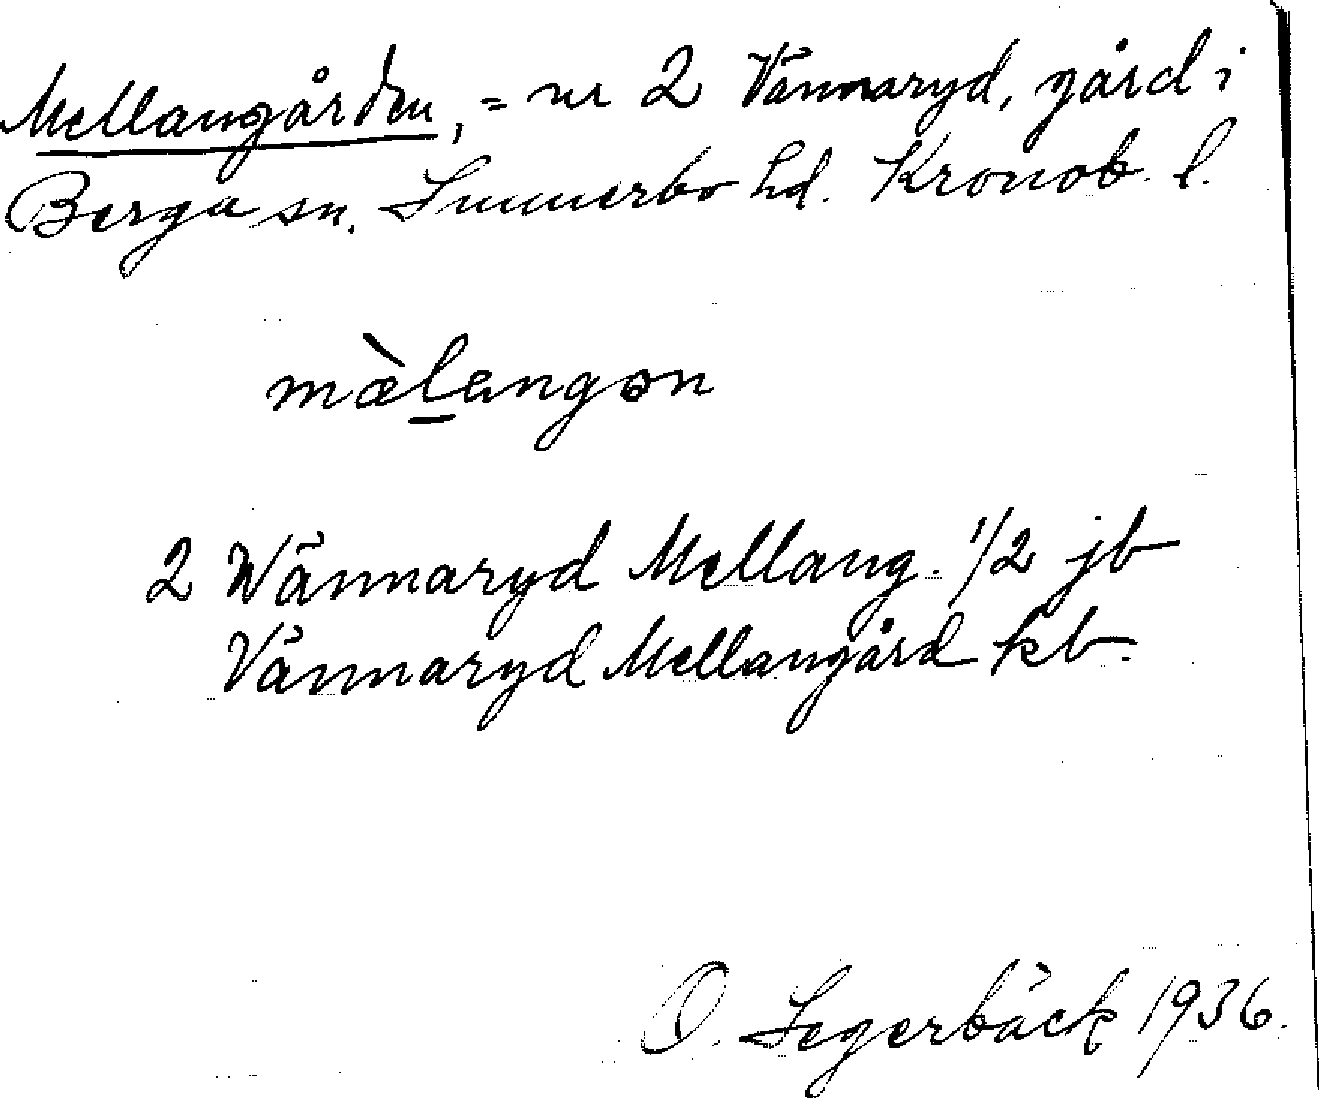 Mellangården, = nr 2 Vännaryd, gård i
Berga sn. Sunnerbo hd. Kronob. l.
mæ̀langən
2 Wännaryd Mellang. 1/2 jb
Vännaryd Mellangård kb.
O. Segerbäck 1936.